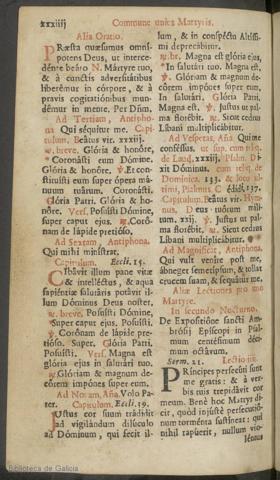 xxxiiij
Commune unius Martyris.
Alia Oratio.
PRæsta quæsumus omni-
potens Deus, ut interce-
dénte beáto N. Mártyre tuo,
& à cunctis adversitátibus
liberémur in córpore, & à
pravis cogitatiónibus mun-
démur in mente. Per Dñm.
Ad Tertiam, Antipho-
na Qui séquitur me. Capi-
tulum. Beátus vir. xxxiij.
℟. breve. Glória & honóre,
* Coronásti eum Dómine.
Glória & honóre. ℣. Et con-
stituísti eum super ópera má-
nuum tuárum. Coronásti.
Glória Patri. Glória & ho-
nóre. Vers. Posuísti Dómine,
super caput ejus. ℟. Coró-
nam de lápide pretióso.
Ad Sextam, Antiphona.
Qui mihi minístrat.
Capitulum. Eccli. 15.
CIbávit illum pane vitæ
& intelléctus, & aqua
sapiéntiæ salutáris potávit il-
lum Dóminus Deus noster.
℟. breve. Posuísti, Dómine,
* Super caput ejus. Posuísti.
℣. Corónam de lápide pre-
tióso. Super. Glória Patri.
Posuísti. Vers. Magna est
glória ejus in salutári tuo.
℟. Glóriam & magnum de-
córem impónes super eum.
Ad Nonam, Aña. Volo Pa-
ter. Capitulum. Eccli. 39.
JUstus cor suum trádidit
ad vigilándum dilúculo
ad Dóminum, qui fecit il-
lum, & in conspéctu Altíssi-
mi deprecábitur.
℟. br. Magna est glória ejus,
* In salutári tuo. Magna est.
℣. Glóriam & magnum de-
córem impónes super eum.
In salutári. Glória Patri.
Magna est. ℣. Justus ut pal-
ma florébit. ℟. Sicut cedrus
Líbani multiplicábitur.
Ad Vesperas, Aña. Qui me
conféssus, ut sup. cum reliq.
de Laud. xxxiij. Psalm. Di-
xit Dóminus. cum reliq. de
Dominica. 133. & loco ul-
timi, Psalmus Crédidi. 137.
Capitulum. Beátus vir. Hym-
nus, Deus tuórum míli-
tum. xxij. ℣. Justus ut pal-
ma florébit. ℟. Sicut cedrus
Líbani multiplicábitur.
Ad Magnificat, Antiphona.
Qui vult veníre post me,
ábneget semetípsum, & tollat
crucem suam, & sequátur me.
Aliæ Lectiones pro uno
Martyre.
In secundo Nocturno.
De Expositióne sancti Am-
brósij Epíscopi in Psal-
mum centésimum déci-
mum octávum.
Serm. 21. Lectio iiij.
PRíncipes persecúti sunt
me gratis: & à ver-
bis tuis trepidávit cor
meum. Benè hoc Martyr di-
cit, quòd injústè persecutió-
num torménta sustíneat: qui
nihil rapúerit, nullum vio-
léntus
Biblioteca de Galicia